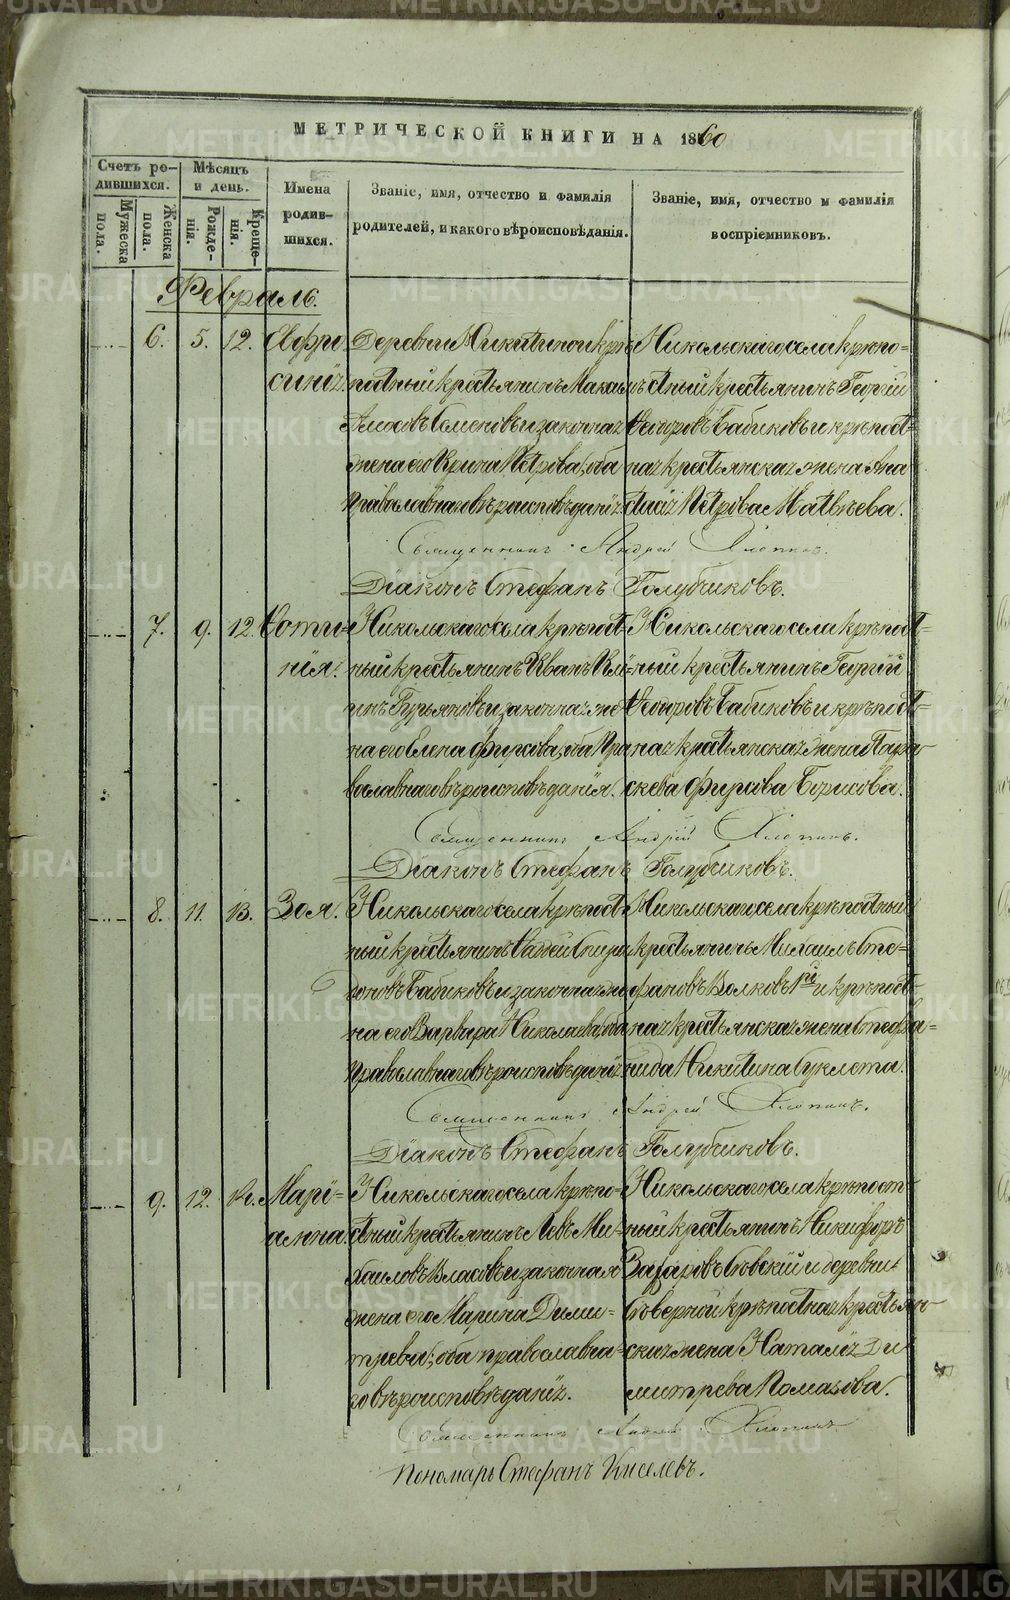 МЕТРИЧЕСКОЙ КНИГИ НА 1860
Счетъ ро-
дившихся.
Мужеска пола.
Женска пола.
Мѣсяцъ
и день.
Рожде-
нія.
Креще-
нія.
Имена
родив-
шихся.
Званіе, имя, отчество и фамилія
родителей, и какого вѣроисповѣданія.
Званіе, имя, отчество и фамилія
воспріемниковъ.
Февраль.
6. 5. 12. Евфро
синія
Деревни Микитиной крѣ
постный крестьянинъ Максимъ
Амосовъ Семеновъ и законная
жена его Ирина Петрова, оба
православнаго вѣроисповѣданія
Никольскаго села крѣпо=
стный крестьянинъ Георгій
Ѳедоровъ Бабиковъ и крѣпост=
ная крестьянская жена Ана
стасія Петрова Матвѣева.
Священникъ Андрей Хлопинъ.
Діаконъ Стефанъ Голубчиковъ.
7. 9. 12. Фоти=
нія.
Никольскаго села крѣпост
ный крестьянинъ Иванъ
инъ Гурьяновъ и законная же
на его Елена Фирсова, оба Пра
вославнаго вѣроисповѣданія.
Никольскаго села крѣпост=
ный крестьянинъ Георгій
Ѳедоровъ Бабиковъ и крѣпост=
ная крестьянская жена Пара
скева Фирсова Борисова.
Священникъ Андрей Хлопинъ.
Діаконъ Стефанъ Голубчиковъ.
8. 11. 13. Зоя.
Никольскаго села крѣпост=
ный крестьянинъ Фадей Спири
доновъ Бабиковъ и законная же
на его Варвара Николаева, оба
Православнаго вѣроисповѣданія
Никольскаго села крѣпостный
крестьянинъ Михаилъ Сте=
фановъ Волковъ 1й и крѣпост=
ная крестьянская жена Стефа=
нида Никитина Суклета.
Священникъ Андрей Хлопинъ.
Діаконъ Стефанъ Голубчиковъ.
9. 12. Марі=
амна
Никольскаго села крѣпо=
стный крестьянинъ Левъ Ми=
хаиловъ Власовъ и законная
жена его Марина Дими=
трева; оба православна=
го вѣроисповѣданія.
Никольскаго села крѣпост=
ный крестьянинъ Никифоръ
Захаровъ и деревни
Сѣверной крѣпостная крестьян
ская жена Наталія Ди
митрева Помазова.
Священникъ Андрей Хлопинъ
Пономарь Стефанъ Киселевъ.
METRIKI.GASO-URAL.RU